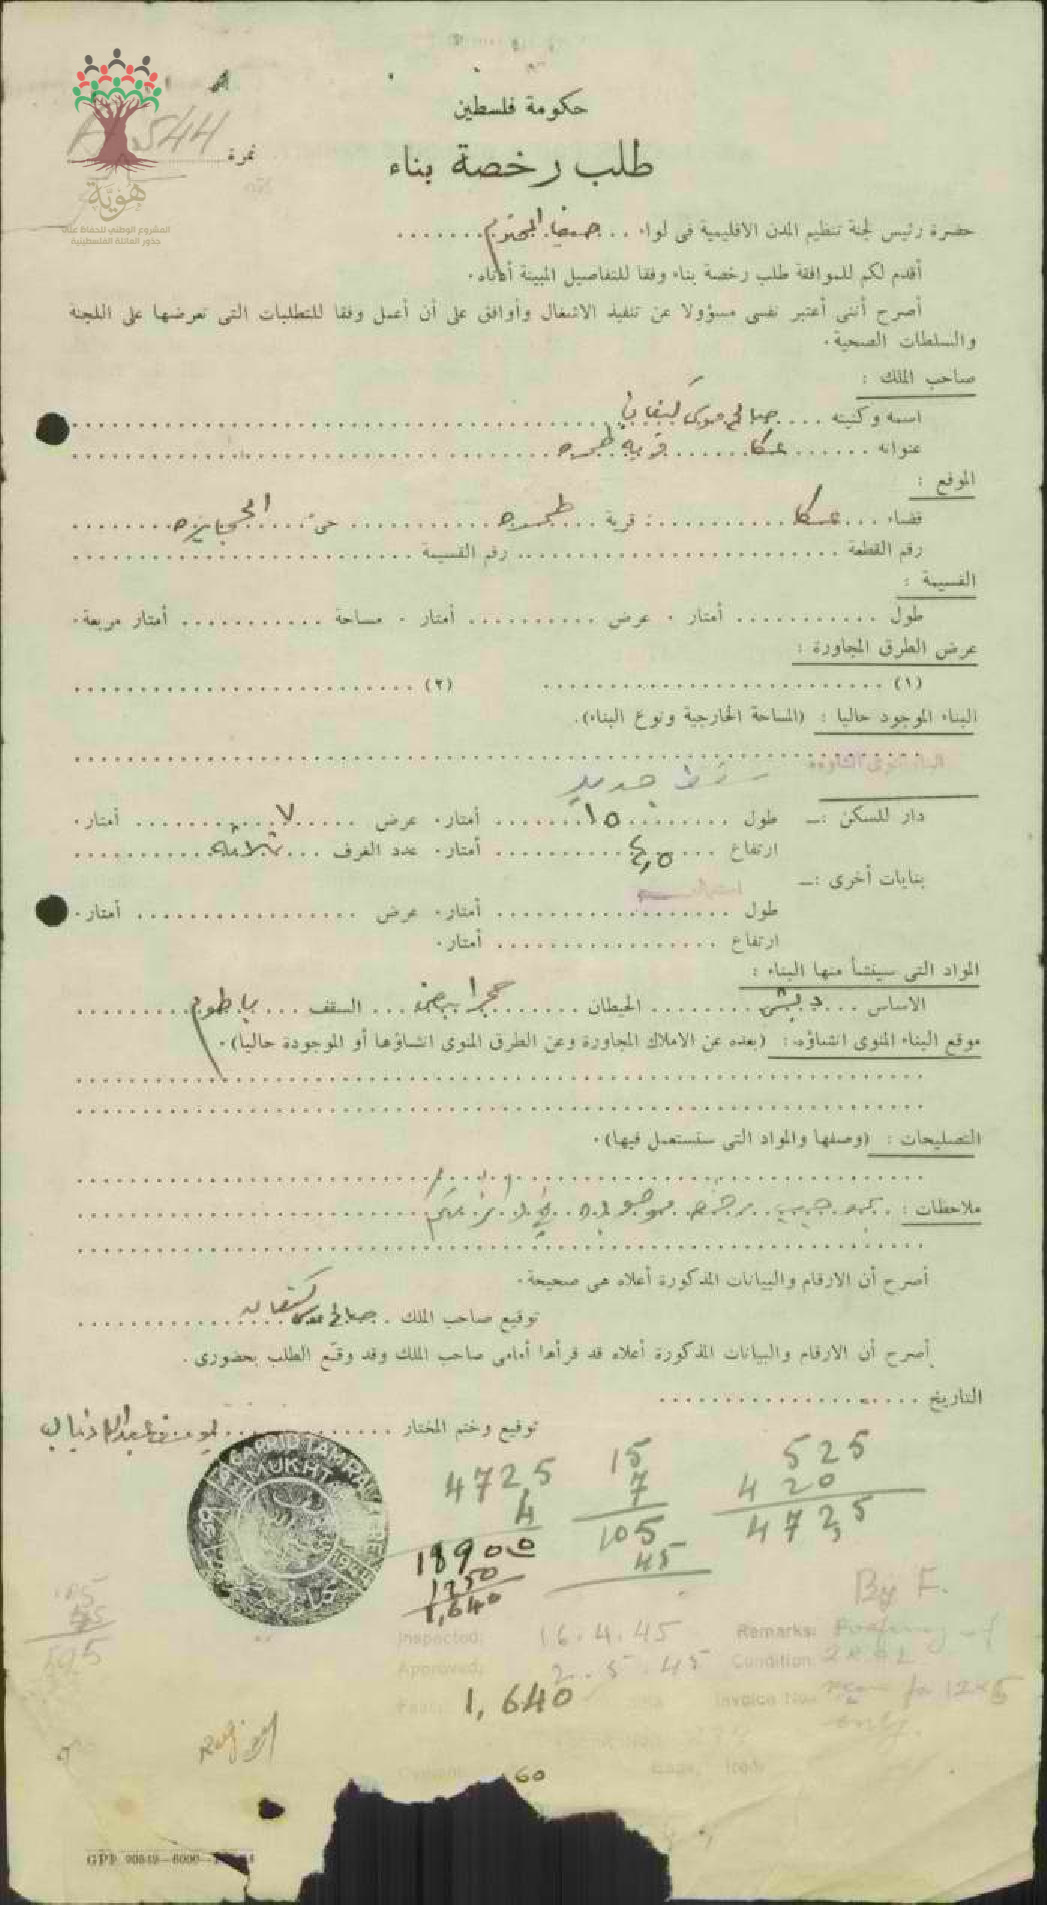 حكومة فلسطين
طلب رخصة بناء
نمرة 544
هُويّة
المشروع الوطني للحفاظ على
جذور العائلة الفلسطينية
حضرة رئيس لجنة تنظيم المدن الاقليمية فى لواء . . حيفا المحترم
أقدم لكم للموافقة طلب رخصة بناء وفقا للتفاصيل المبينة أدناه .
أصرح أننى أعتبر نفسى مسؤولا عن تنفيذ الاشغال وأوافق على أن أعمل وفقا للمتطلبات التى تعرضها على اللجنة
والسلطات الصحية .
صاحب الملك :
اسمه وكنيته . . . صالح موسى كنعان
عنوانه . . . عكا . . . قرية طمره
الموقع :
قضاء . . . عكا . . . قرية . . . طمره . . . حى
رقم القطعة . . . رقم القسيمة . . .
القسيمة :
طول . . . أمتار . عرض . . . أمتار . مساحة . . . أمتار مربعة .
عرض الطرق المجاورة :
(١) . . . (٢) . . .
البناء الموجود حاليا : (المساحة الخارجية ونوع البناء).
البناء المنوى انشاؤه
جديد
دار للسكن :— طول . . . ١٥ . . . أمتار . عرض . . . ٧ . . . أمتار .
ارتفاع . . . ٤,٥ . . . أمتار . عدد الغرف . . . ثلاثه
بنايات أخرى :—
طول . . . أمتار . عرض . . . أمتار .
ارتفاع . . . أمتار .
المواد التى سينشأ منها البناء :
الاساس . . . دبش . . . الحيطان . . . حجر ابيض . . . السقف . . . باطوم
موقع البناء المنوى انشاؤه : (بعده عن الاملاك المجاورة وعن الطرق المنوى انشاؤها أو الموجودة حاليا) .
التصليحات : (وصفها والمواد التى ستستعمل فيها) .
ملاحظات :
أصرح أن الارقام والبيانات المذكورة أعلاه هى صحيحة .
توقيع صاحب الملك . صالح موسى كنعان
أصرح أن الارقام والبيانات المذكورة أعلاه قد قرأها أمامى صاحب الملك وقد وقع الطلب بحضورى .
التاريخ . . .
توقيع وختم المختار . . . يوسف عبدالله ذياب
TAMRA
MUKHTAR
525
420
4725
15
7
105
45
472,5
4
18900
1250
1,640
By F.
Inspected: 16.4.45 Remarks:
Approved: 2.5.45 Condition:
Fees: 1,640 Invoice No. for 12×5
only.
60
GPP 90849—6000—